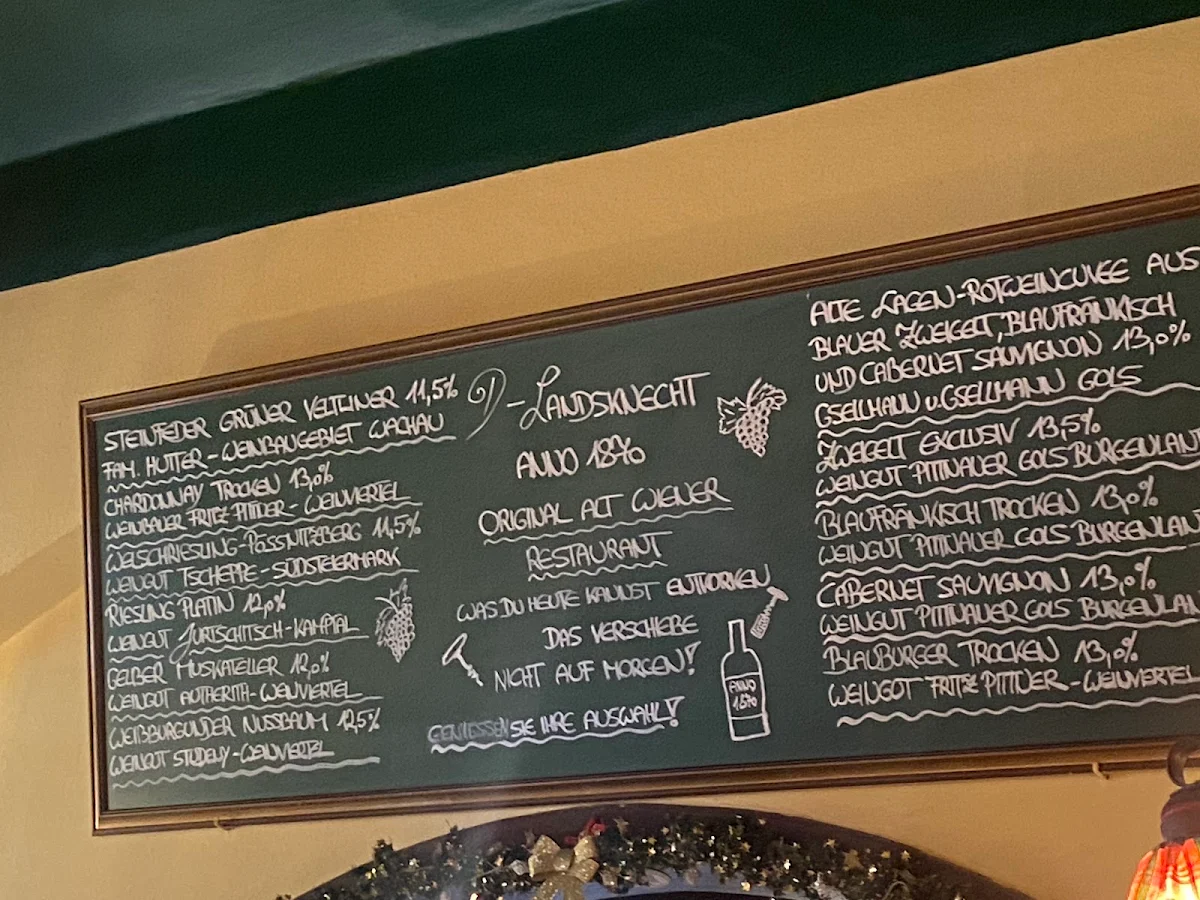 STEINFEDER GRÜNER VELTLINER 11,5%
FAM. HUTTER - WEINBAUGEBIET WACHAU
CHARDONNAY TROCKEN 13,0%
WEINBAUER FRITZ PITTNER - WEINVIERTEL
WELSCHRIESLING - POSSNITZBERG 11,5%
WEINGUT TSCHEPPE - SÜDSTEIERMARK
RIESLING PLATIN 12,0%
WEINGUT JURTSCHITSCH - KAMPTAL
GELBER MUSKATELLER 12,0%
WEINGUT AUTHERITH - WEINVIERTEL
WEIßBURGUNDER NUSSBAUM 12,5%
WEINGUT STUDENY - WEINVIERTEL
D - LANDSKNECHT
ANNO 1870
ORIGINAL ALT WIENER
RESTAURANT
WAS DU HEUTE KANNST ENTKORKEN
DAS VERSCHIEBE
NICHT AUF MORGEN!
GENIESSEN SIE IHRE AUSWAHL!
ANNO
1870
ALTE LAGEN - ROTWEINCUVEE AUS
BLAUER ZWEIGELT, BLAUFRÄNKISCH
UND CABERNET SAUVIGNON 13,0%
GSELLMANN u. GSELLMANN GOLS
ZWEIGELT EXCLUSIV 13,5%
WEINGUT PITTNAUER GOLS BURGENLAN
BLAUFRÄNKISCH TROCKEN 13,0%
WEINGUT PITTNAUER GOLS BURGENLAN
CABERNET SAUVIGNON 13,0%
WEINGUT PITTNAUER GOLS BURGENLAN
BLAUBURGER TROCKEN 13,0%
WEINGOT FRITZ PITTNER - WEINVIERTEL